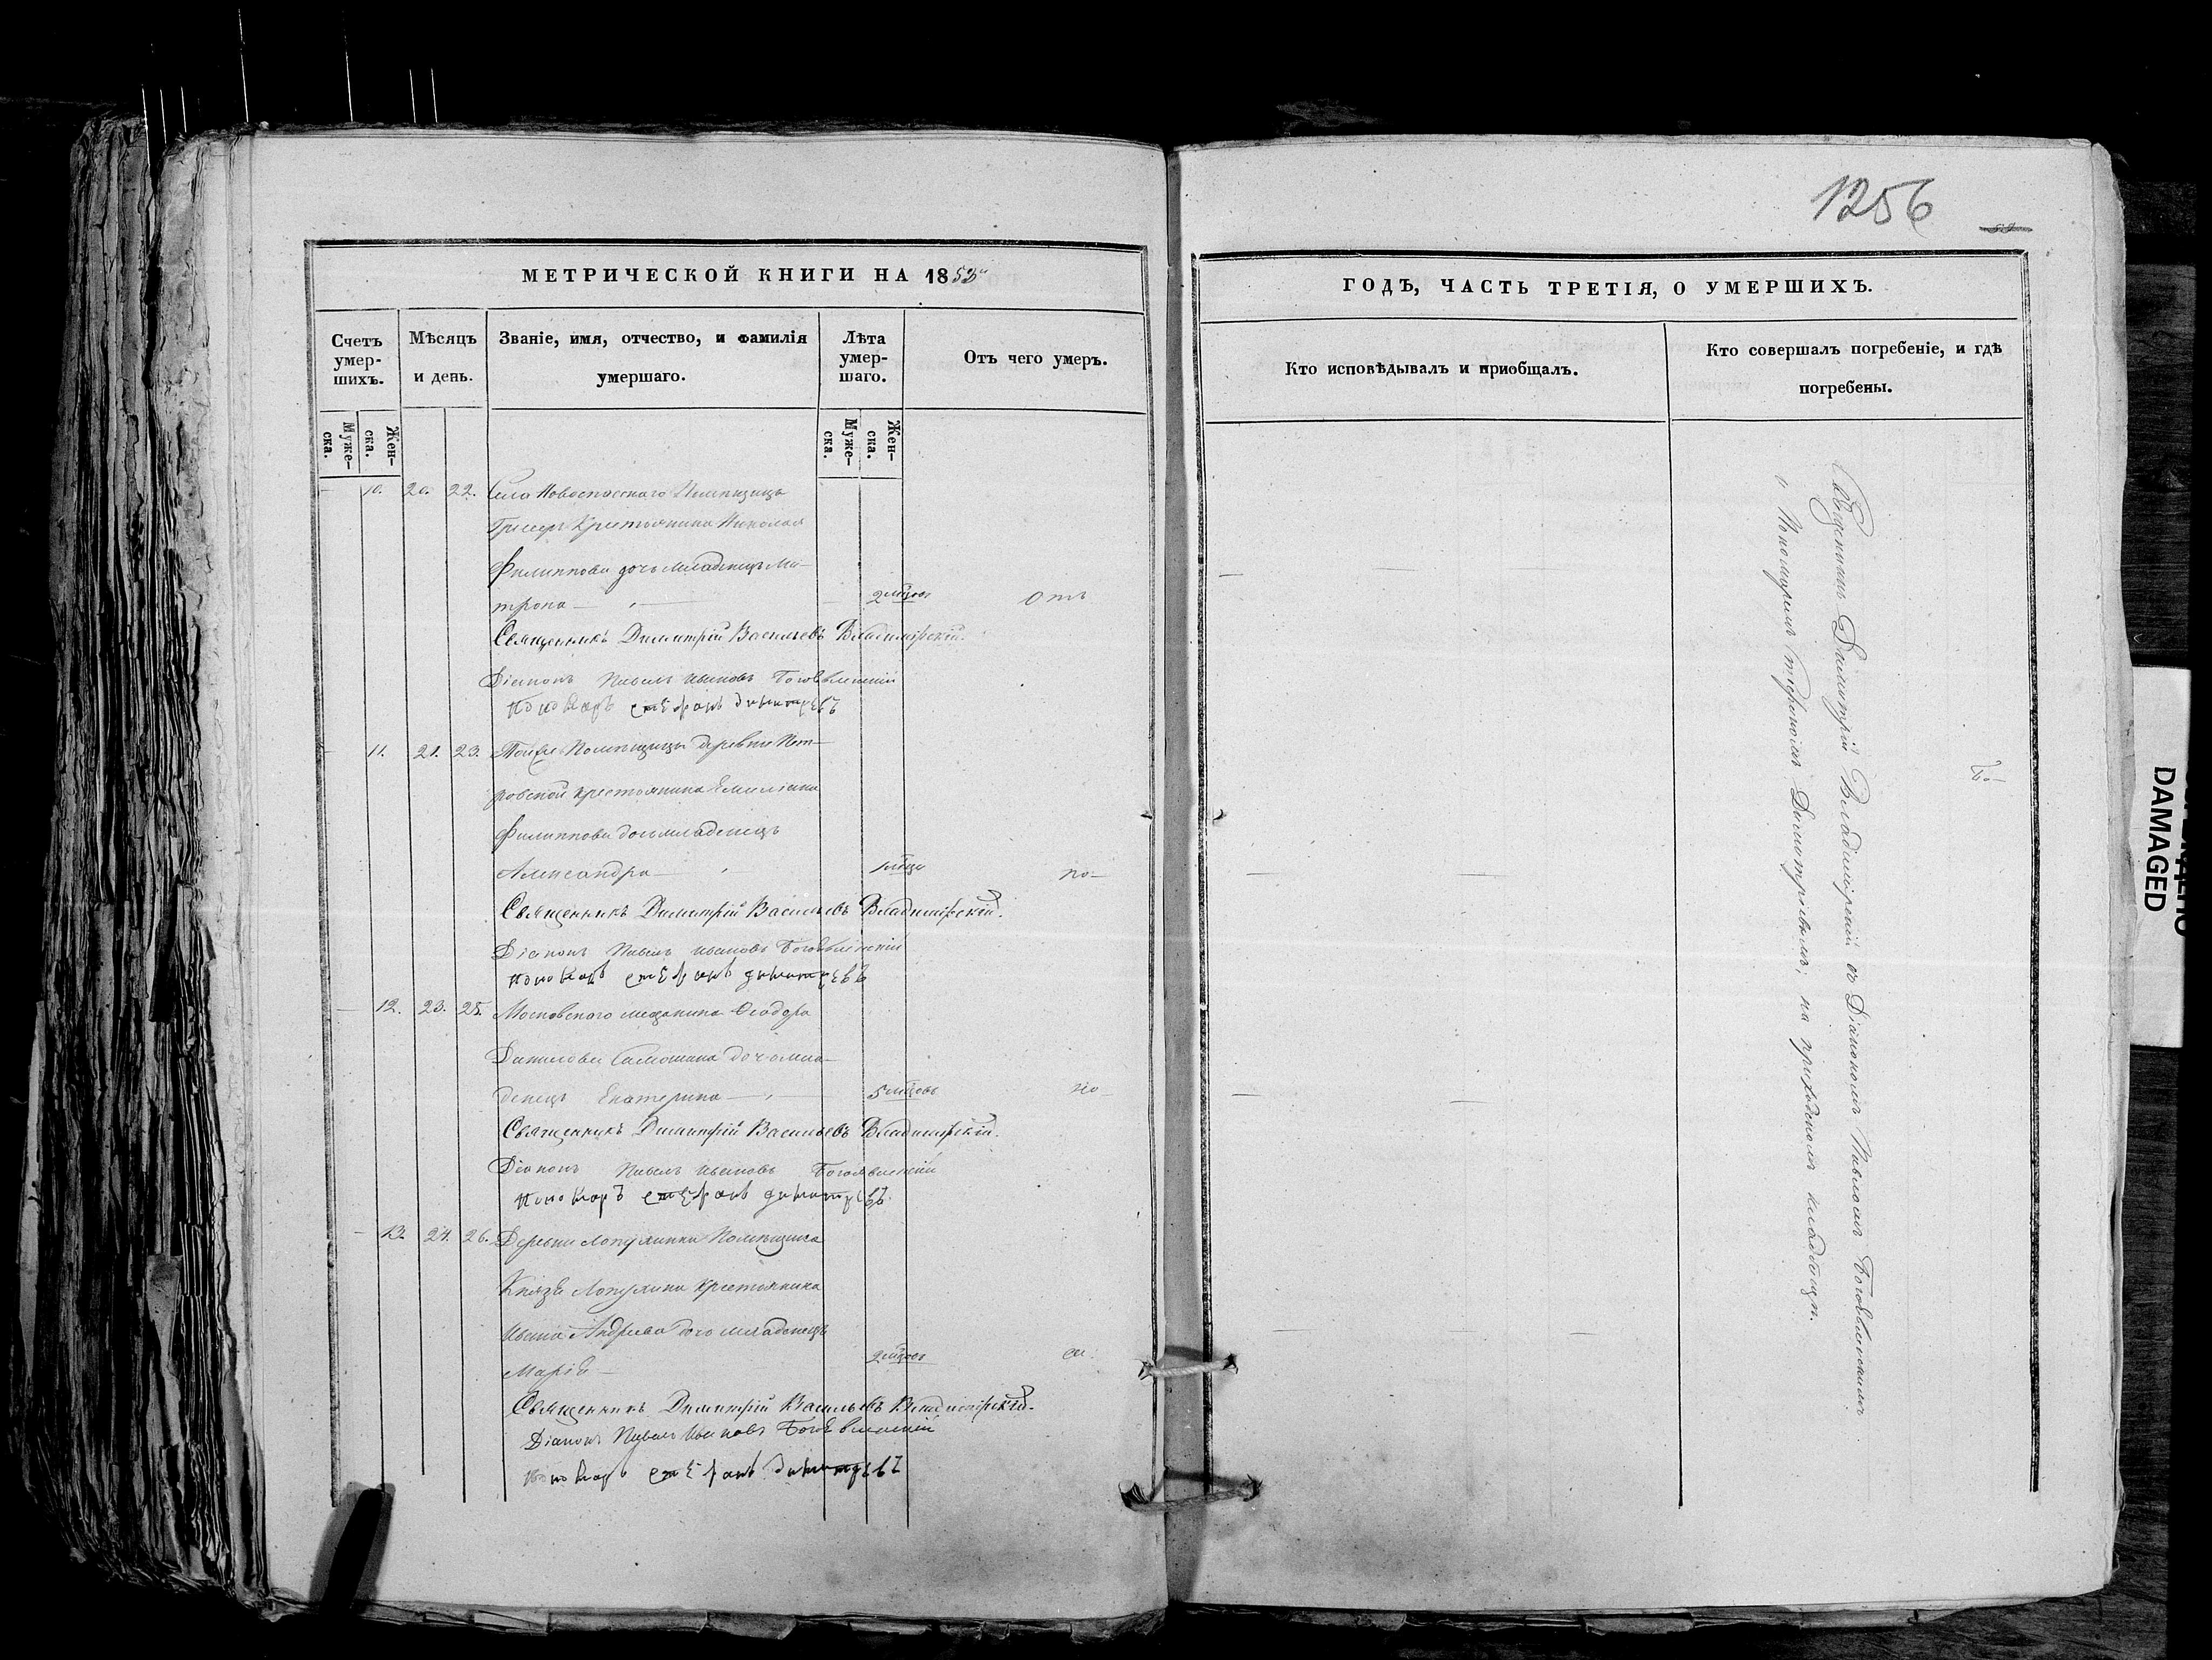 МЕТРИЧЕСКОЙ КНИГИ НА 1853й
Счетъ умер-шихъ.
Мѣсяцъ и день.
Званіе, имя, отчество, и фамилія умершаго.
Лѣта умер-шаго.
Отъ чего умеръ.
Муже-ска.
Жен-ска.
Муже-ска.
Жен-ска.
10. 20. 22. Села Новоспасскаго Помѣщицы
крестьянина Николая
Филиппова дочь младенецъ Ма-
трона 2 мцовъ Отъ
Священникъ Димитрій Васильевъ Владимірскій.
Діаконъ Павелъ Ивановъ Богоявленскій
Пономарь Стефанъ Димитревъ
11. 21. 23. Тойже Помѣщицы деревни Пет-
ровской крестьянина Емиліана
Филиппова дочь младенецъ
Александра 1 мца по-
Священникъ Димитрій Васильевъ Владимірскій.
Діаконъ Павелъ Ивановъ Богоявленскій
Пономарь Стефанъ Димитревъ
12. 23. 25. Московскаго мещанина Ѳеодора
Данилова Самошина дочь мла-
денецъ Екатерина 5 мцовъ но-
Священникъ Димитрій Васильевъ Владимірскій.
Діаконъ Павелъ Ивановъ Богоявленскій
Пономарь Стефанъ Димитревъ.
13. 24. 26. Деревни Лопухинки Помѣщика
Князя Лопухина крестьянина
Ивана Андреева дочь младенецъ
Марія 2 мцовъ са.
Священникъ Димитрій Васильевъ Владимірскій.
Діаконъ Павелъ Ивановъ Богоявленскій
Пономарь Стефанъ Димитревъ
1256
ГОДЪ, ЧАСТЬ ТРЕТІЯ, О УМЕРШИХЪ.
Кто исповѣдывалъ и пріобщалъ.
Кто совершалъ погребеніе, и гдѣ погребены.
Священникъ Димитрій Владимірскій съ Діакономъ Павломъ Богоявленскимъ
и Пономаремъ Стефаномъ Димитріевымъ; на приходскомъ кладбищѣ.
DAMAGED